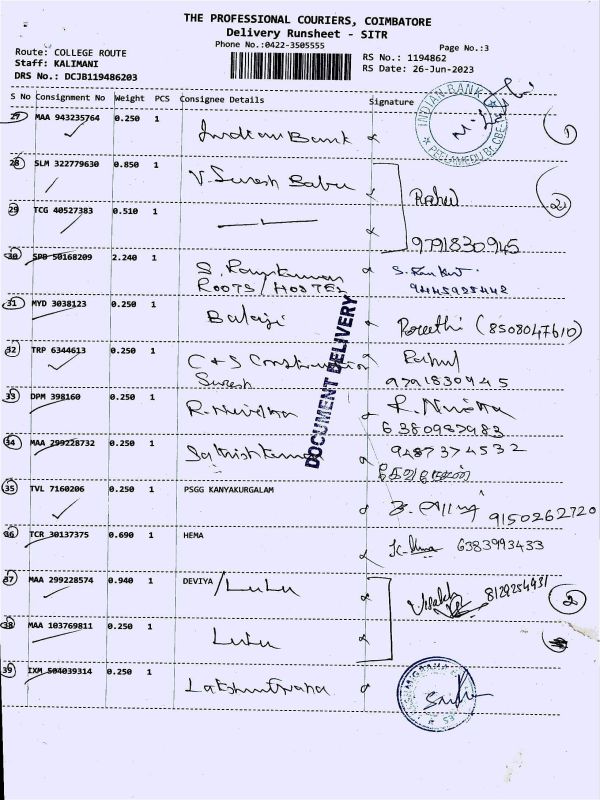 THE PROFESSIONAL COURIERS, COIMBATORE
Delivery Runsheet - SITR
Phone No.:0422-3505555
Page No.:3
Route: COLLEGE ROUTE
RS No.: 1194862
Staff: KALIMANI
RS Date: 26-Jun-2023
DRS No.: DCJB119486203
S No Consignment No Weight PCS Consignee Details Signature
INDIAN BANK
PEELAMEDU Br. CBE
27 MAA 943235764 0.250 1 Indian Bank 1
28 SLM 322779630 0.850 1 V. Suresh Babu Rahul 2
29 TCG 40527383 0.510 1
9791830945
30 SPB 50168209 2.240 1 S. Ramkumar
ROOTS / HOSTEL
31 MYD 3038123 0.250 1 Balaji Preethi (8508047610)
32 TRP 6344613 0.250 1 C + S Construction Rahul
Suresh 9791830945
33 DPM 398160 0.250 1 R. Nivetha R. Nivetha
6380987983
34 MAA 299228732 0.250 1 Sathish Kumar 9487374532
DOCUMENT DELIVERY
35 TVL 7160206 0.250 1 PSGG KANYAKURGALAM 9150262720
36 TCR 30137375 0.690 1 HEMA 6383993433
37 MAA 299228574 0.940 1 DEVIYA / LuLu 8129254931 2
38 MAA 103769811 0.250 1 LuLu
39 IXM 504039314 0.250 1